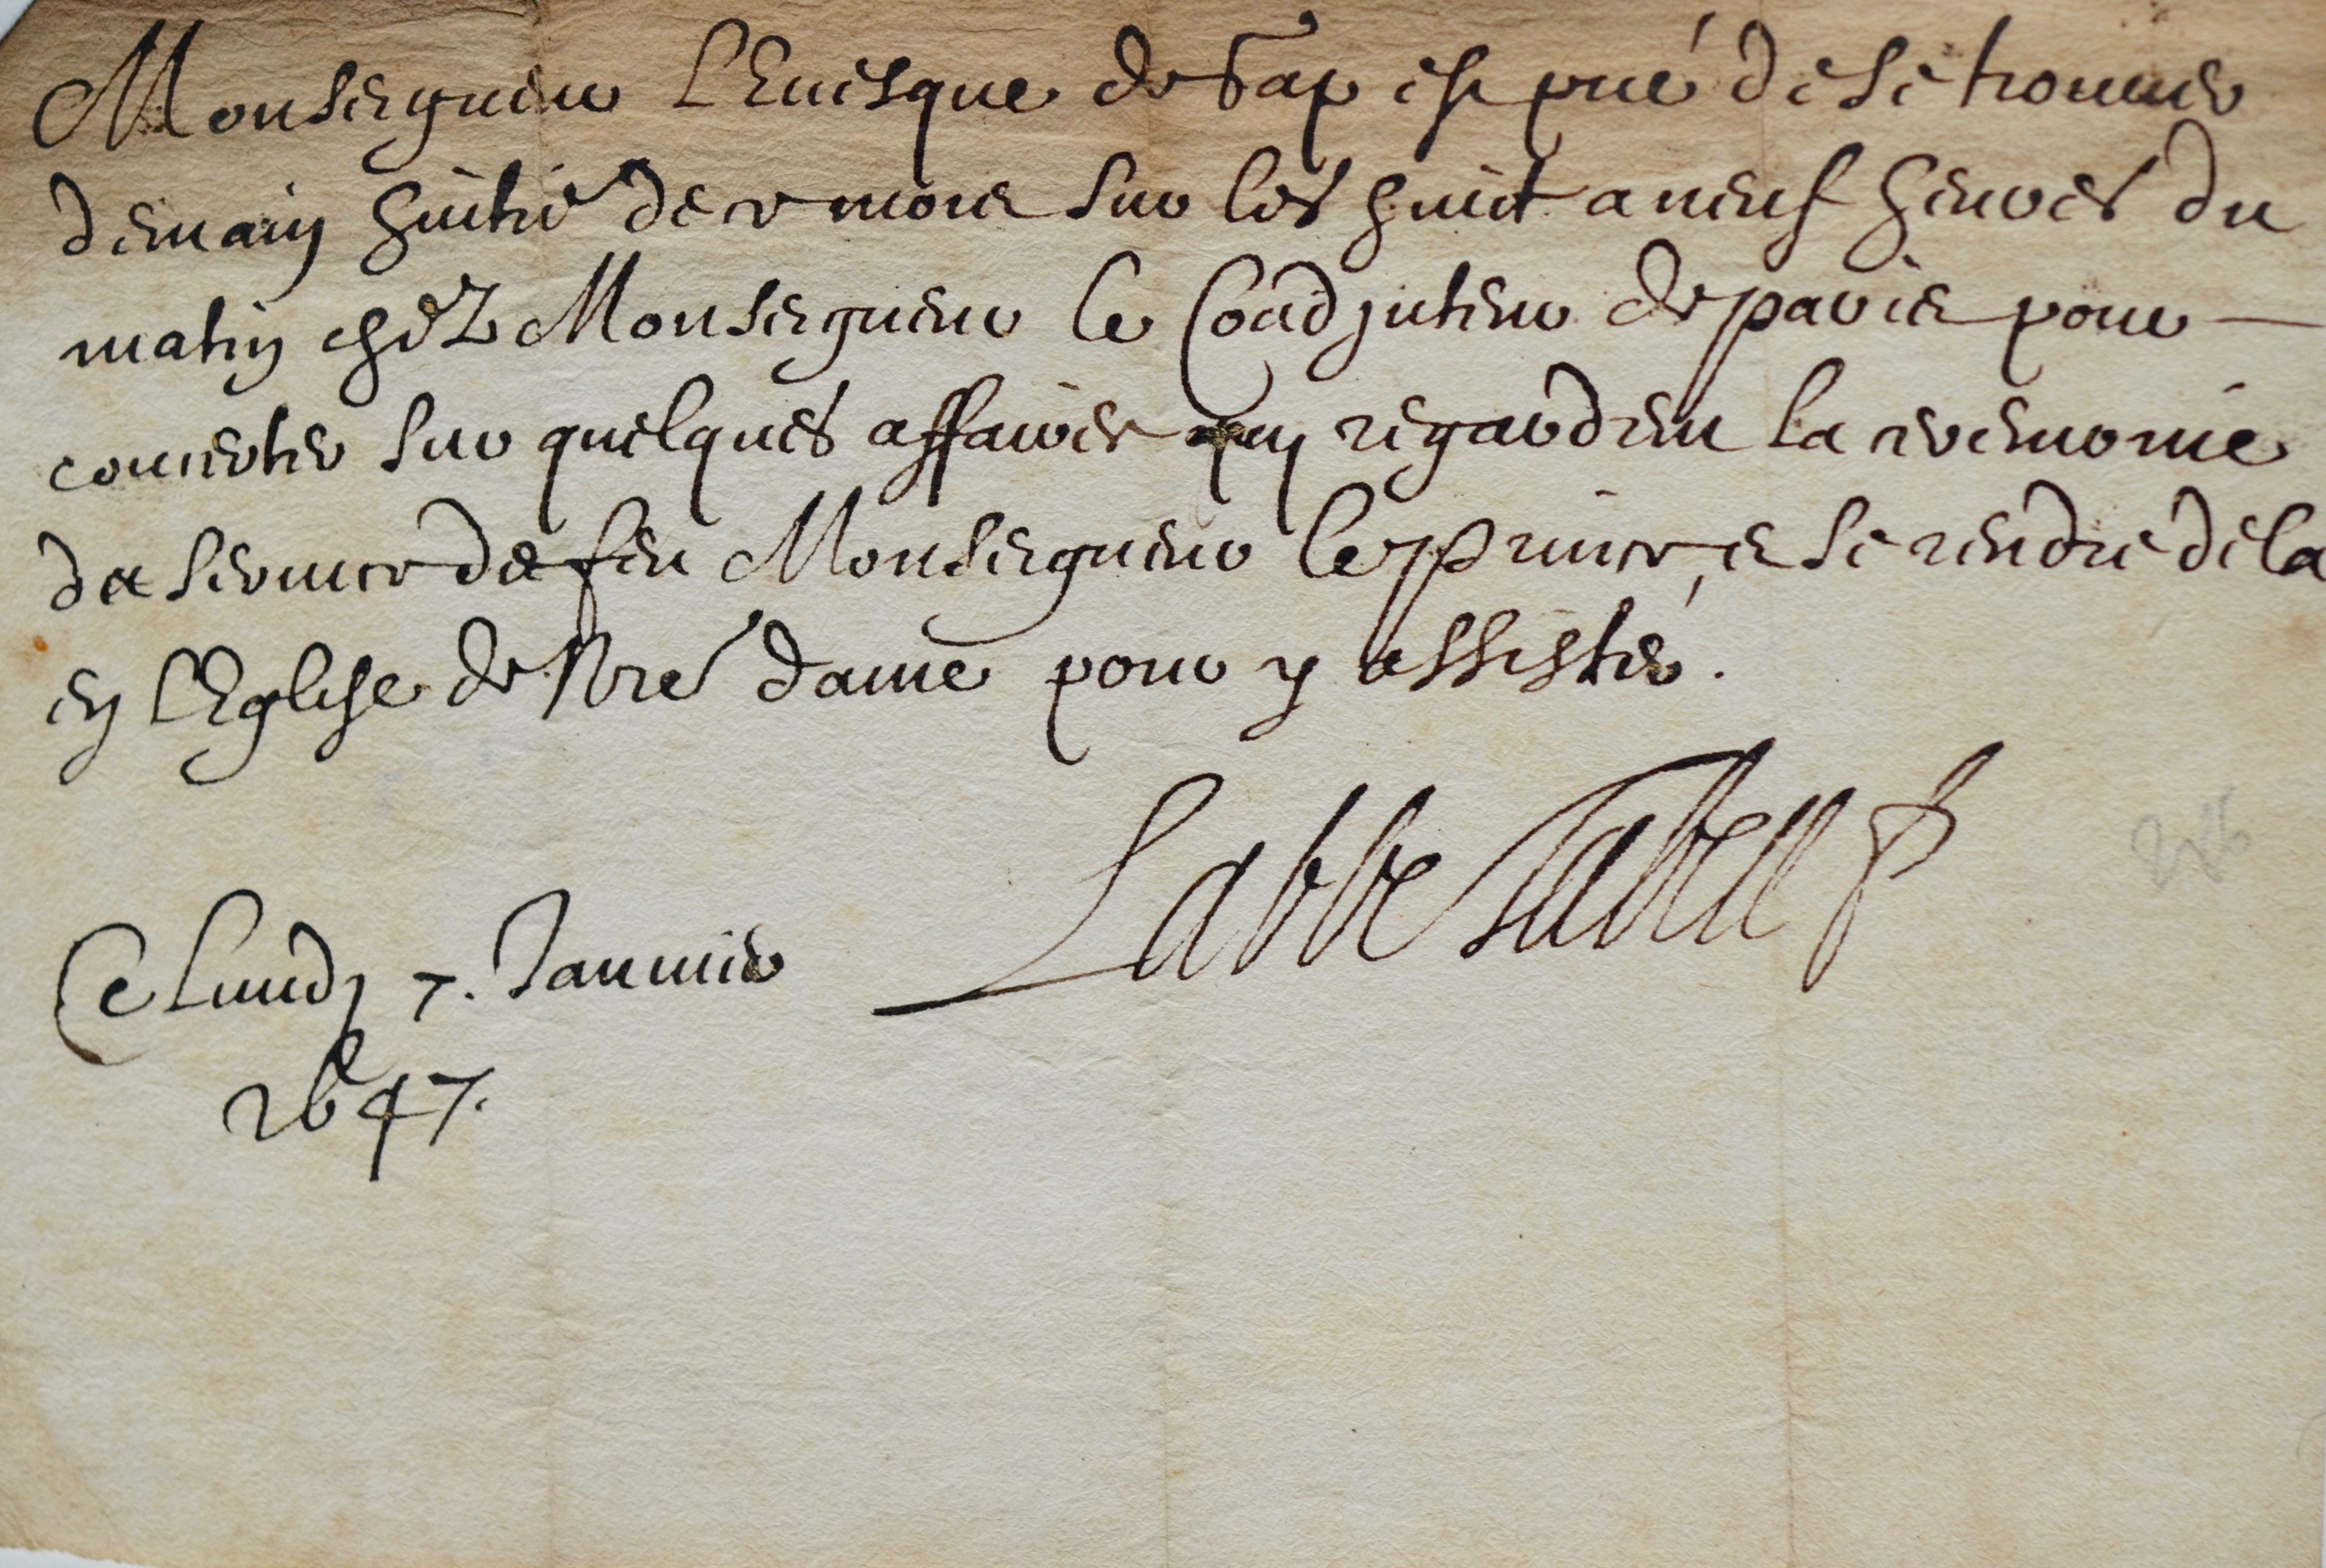 Monseigneur L'Euesque de Gap est prié de se trouuer
demain huitie de ce mois sur les huict a neuf heures du
matin chez Monseigneur le Coadjuteur de paris pour
concerter sur quelques affaires qui regardent la ceremonie
de seruice de feu Monseigneur le prince, et se rendre de la
en l'Eglise de Nre dame pour y assister.
Labbe
Ce Lundy 7. Januier
1647.